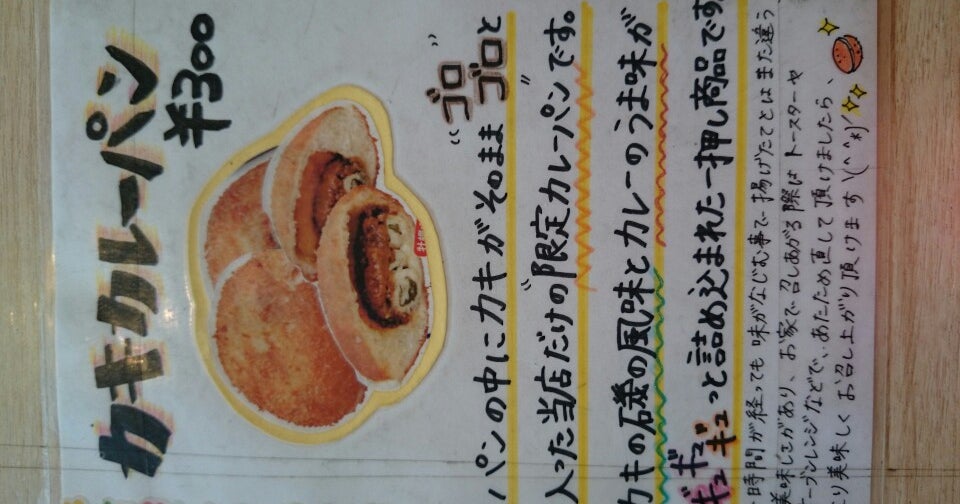 カキカレーパン
¥300
パンの中にカキがそのまま"ゴロゴロ"と
入った当店だけの"限定カレーパン"です。
カキの磯の風味とカレーのうま味が
ギュギュギュッと詰め込まれた一押し商品です
時間が経っても味がなじむ事で揚げたてとはまた違う
美味しさがあり、お家で召しあがる際はトースターや
ーブンレンジなどで、あたため直して頂けましたら、
り美味しくお召し上がり頂けます\(^^*)/